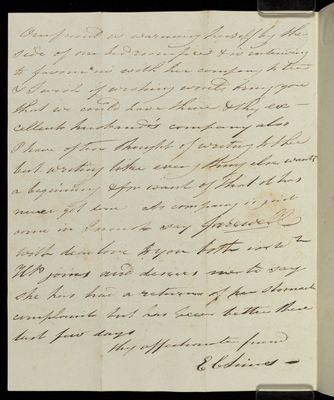 Our friend is warming herself by the
side of our bed room fire & is intending
to favour us with her company to tea
& I wish if wishing would bring you
that we could have thine & thy ex-
cellent husband's company also
I have often thought of writing to thee
but writing like every thing else wants
a beginning & for want of that it has
never got done As company is just
come in I must say farewell
with dear love to you both in which
joins and desires me to say
she has had a return of her stomach
complaint but has been better these
last few days
thy affectionate friend
E C Sims